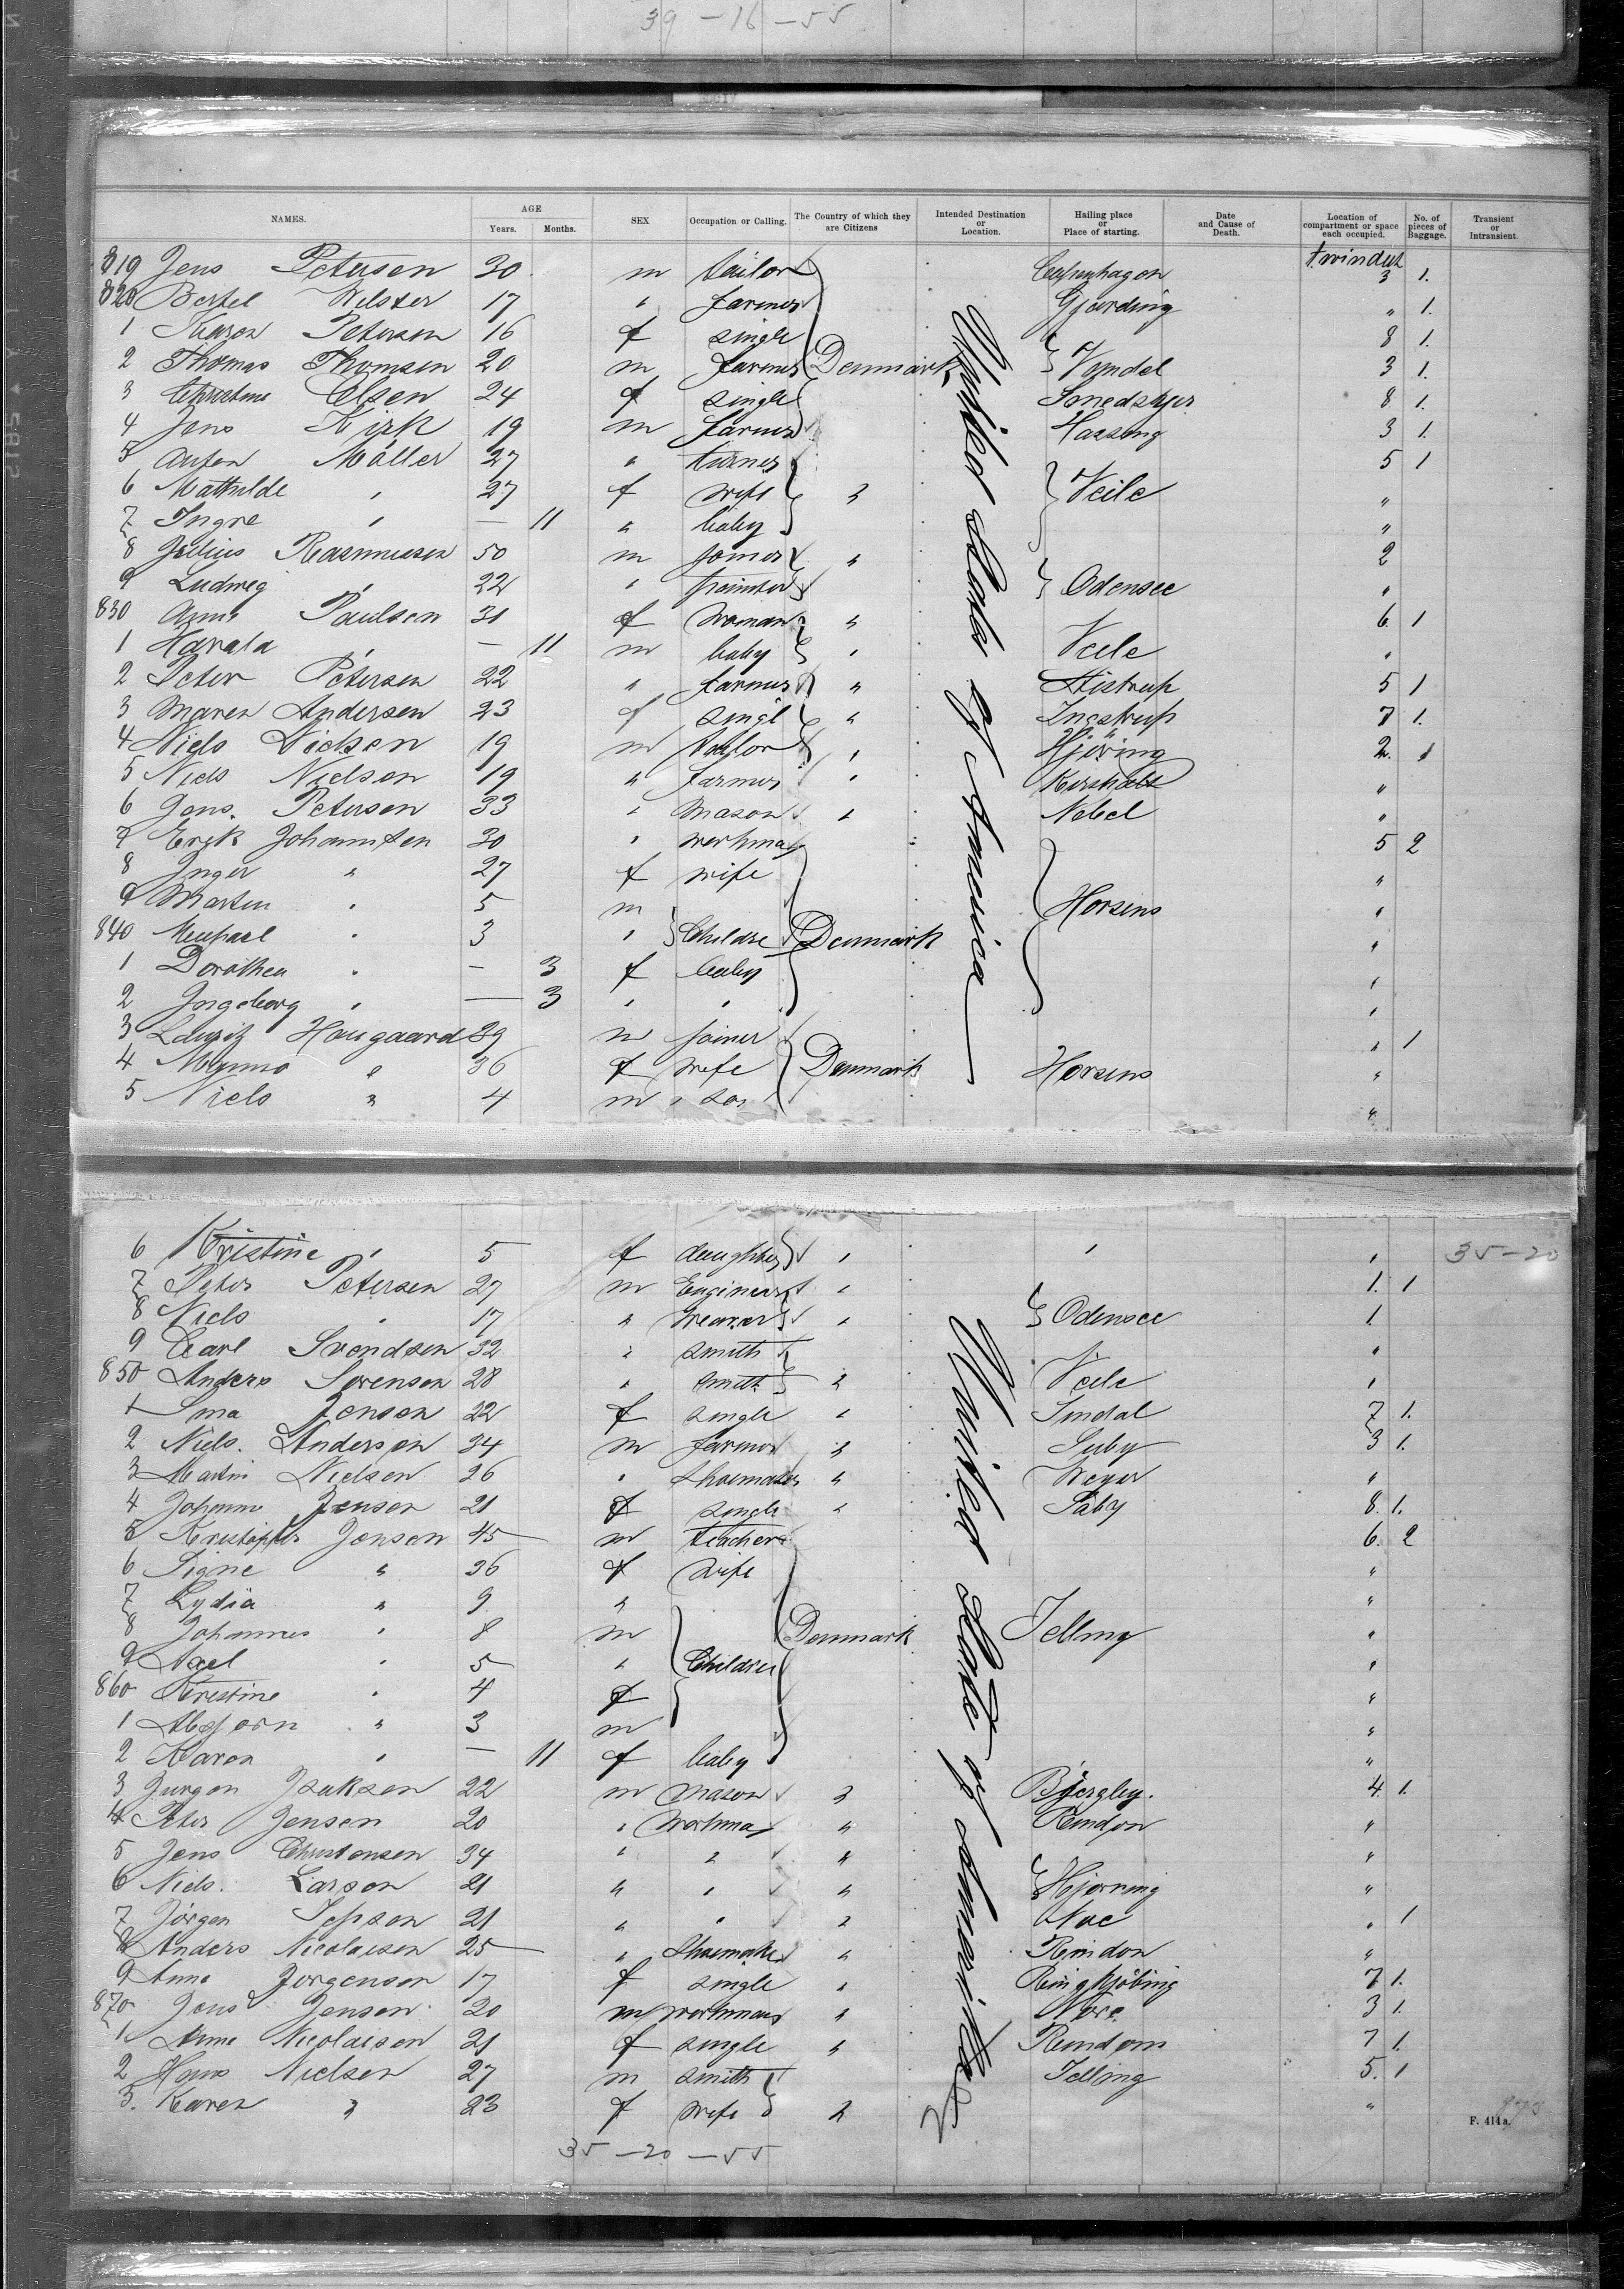 39-16-55
NAMES. AGE Years. Months. SEX Occupation or Calling. The Country of which they are Citizens Intended Destination or Location. Hailing place or Place of starting. Date and Cause of Death. Location of compartment or space each occupied. No. of pieces of Baggage. Transient or Intransient.
819 Jens Petersen 30 m tailor Copenhagen 3 1.
820 Bertel Welster 17 " farmer Gjording " 1.
1 Karen Petersen 16 f single 8 1.
2 Thomas Thomsen 20 m farmer Denmark Vamdel 3 1.
3 Christine Elsen 24 f single 8 1.
4 Jens Kirk 19 m farmer Hassing 3 1.
5 Anton Möller 27 " turner 5 1
6 Mathilde " 27 f wife " Veile "
7 Ingre " — 11 " baby "
8 Julius Rasmussen 50 m joiner " 2
9 Ludwig " 22 " painter Odensee "
830 Anna Paulsen 31 f woman " 6 1
1 Harald " — 11 m baby " Veile "
2 Peter Petersen 22 " farmer " Aistrup 5 1
3 Maren Andersen 23 f singl " Ingstrup 7 1.
4 Niels Nielsen 19 m taylor " Hjöring 2. 1
5 Niels Nielsen 19 " farmer " "
6 Jens. Petersen 33 " mason " Nebel "
7 Erik Johannsen 30 " workma 5 2
8 Inger " 27 f wife "
9 Marten " 5 m Horsens "
840 Michael " 3 " Childre Denmark "
1 Dorothea " — 3 f baby "
2 Ingeborg " — 3 " " "
3 Lauritz Haugaard 39 m joiner " 1
4 Mynna " 36 f wife Denmark Horsens "
5 Niels " 4 m son "
United States of America
6 Kristine " 5 f daughter " " " 35-20
7 Peter Petersen 27 m Engineer " 1. 1
8 Niels " 17 " weaver " Odensee 1
9 Carl Svendsen 32 " smith "
850 Anders Sorensen 28 " smith " Veile "
1 Sina Jensen 22 f single " Sindal 7 1.
2 Niels. Anderson 34 m farmer " Suby 3 1.
3 Martin Nielsen 26 " Shoemaker " "
4 Johanne Jensen 21 f single " Säby 8. 1.
5 Kristopher Jensen 45 m teacher 6. 2
6 Signe " 36 f wife "
7 Lydia " 9 " "
8 Johannes " 8 m Denmark Jelling "
9 Axel " 5 " Children "
860 Kristine " 4 f "
1 Absjorn " 3 m "
2 Karen " — 11 f baby "
3 Jurgen Isaksen 22 m mason " Bjergley. 4 1.
4 Peter Jensen 20 " workma " Remdom "
5 Jens Christensen 34 " " " "
6 Niels. Larsen 21 " " " Hjorning "
7 Jörgen Jepsen 21 " " " Noe " 1
8 Anders Nicolaisen 25 " Shoemaker " Remdom "
9 Anna Jorgensen 17 f single " Ringkjöbing 7 1.
870 Jens Jensen 20 m workman " Nore 3 1.
1 Anna Nicolaisen 21 f single " Remdom 7 1.
2 Hans Nielsen 27 m smith Jelling 5. 1
3. Karen " 23 f wife " "
United States of America
35-20-55
873
F. 414a.